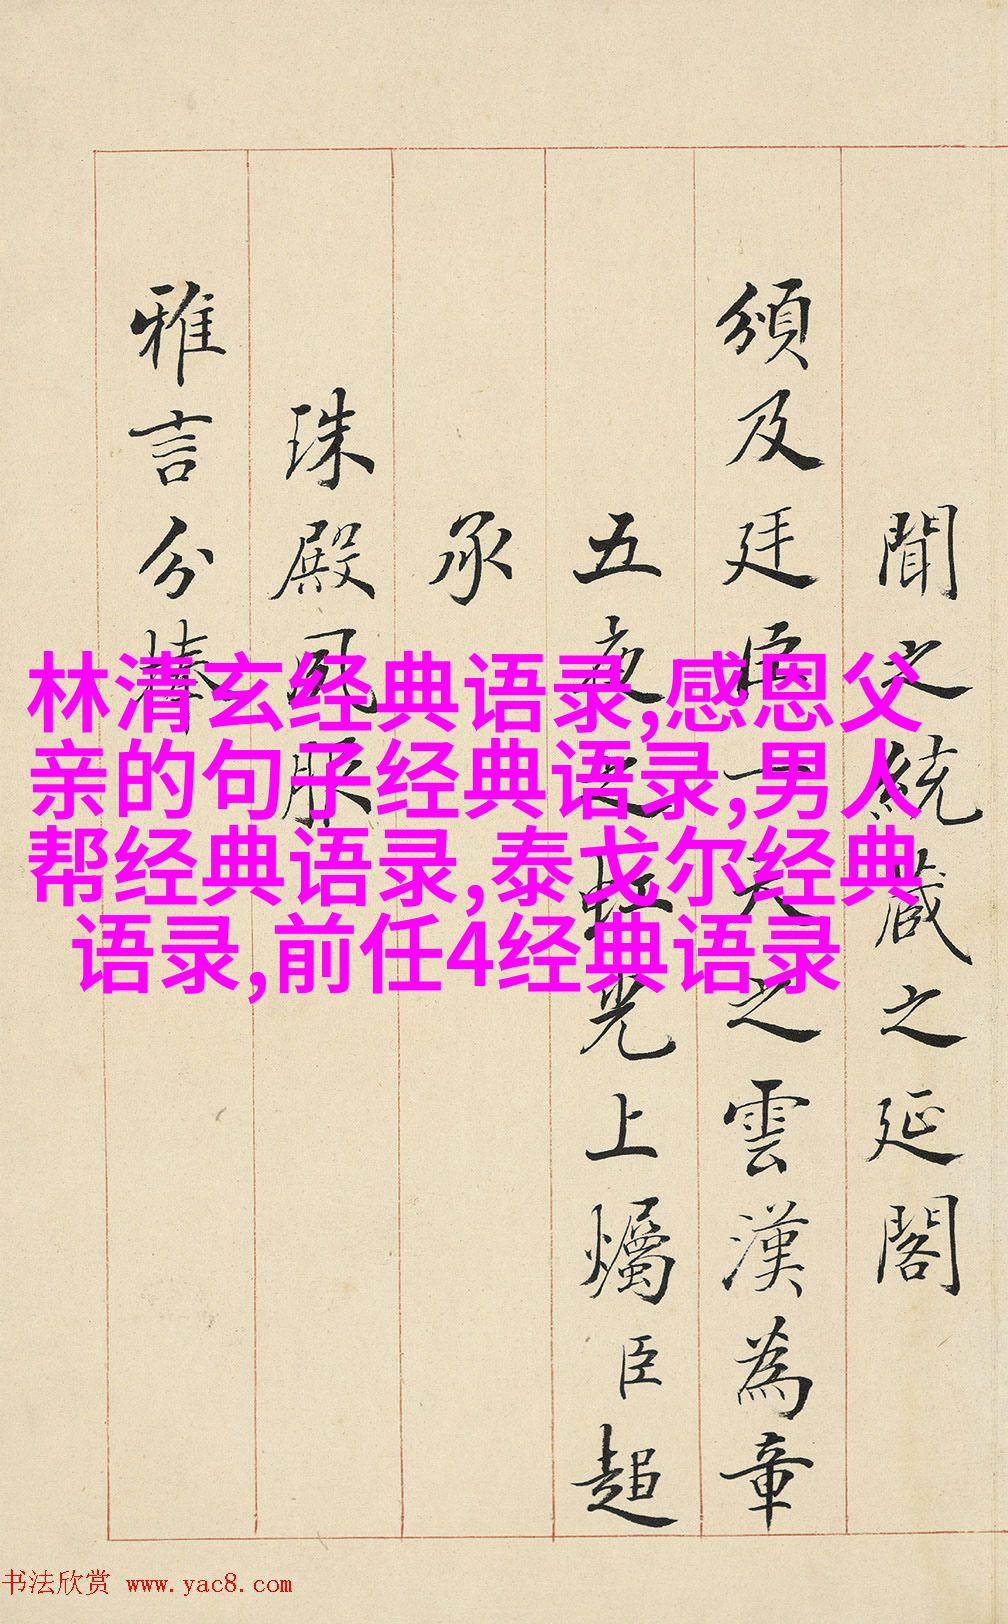 聞之統藏之延閣
頒及廷臣一天之雲漢為章
五夜之虹光上爥臣超
承
珠殿夙服
雅言分捧
林清玄经典语录,感恩父
亲的句子经典语录,男人
帮经典语录,泰戈尔经典
语录,前任4经典语录
书法欣赏 www.yac8.com